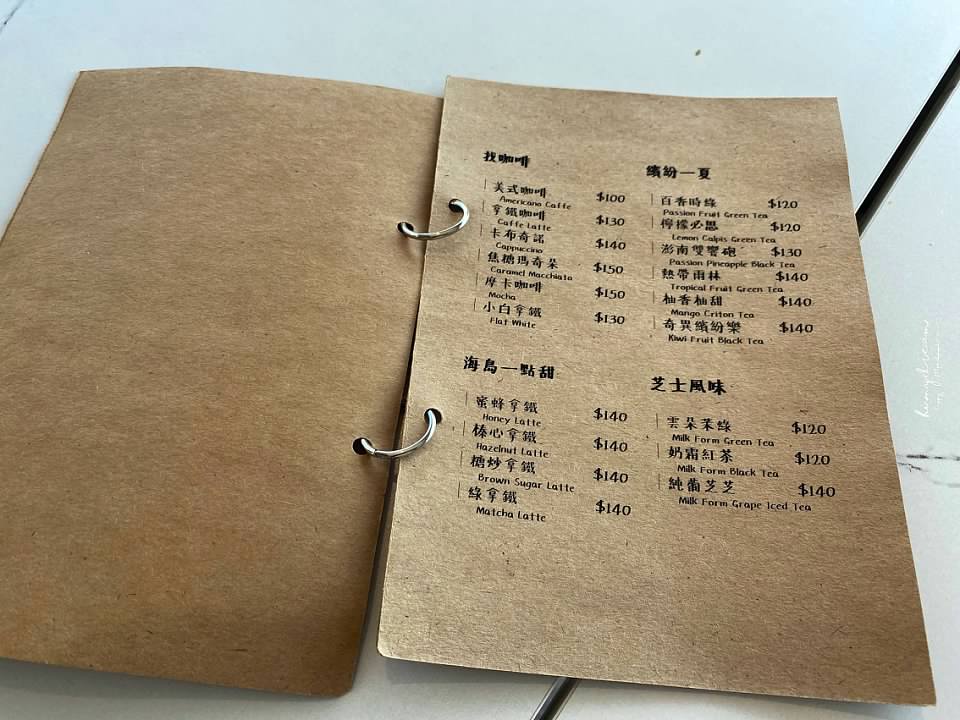 找咖啡
美式咖啡 $100
Americano Caffe
拿鐵咖啡 $130
Caffe Latte
卡布奇諾 $140
Cappuccino
焦糖瑪奇朵 $150
Caramel Macchiato
摩卡咖啡 $150
Mocha
小白拿鐵 $130
Flat White
海島一點甜
蜜蜂拿鐵 $140
Honey Latte
榛心拿鐵 $140
Hazelnut Latte
糖炒拿鐵 $140
Brown Sugar Latte
綠拿鐵 $140
Matcha Latte
繽紛一夏
百香時綠 $120
Passion Fruit Green Tea
檸檬必思 $120
Lemon Calpis Green Tea
澎南雙響砲 $130
Passion Pineapple Black Tea
熱帶雨林 $140
Tropical Fruit Green Tea
柚香柚甜 $140
Mango Criton Tea
奇異繽紛樂 $140
Kiwi Fruit Black Tea
芝士風味
雲朵茉綠 $120
Milk Form Green Tea
奶霜紅茶 $120
Milk Form Black Tea
純葡芝芝 $140
Milk Form Grape Iced Tea